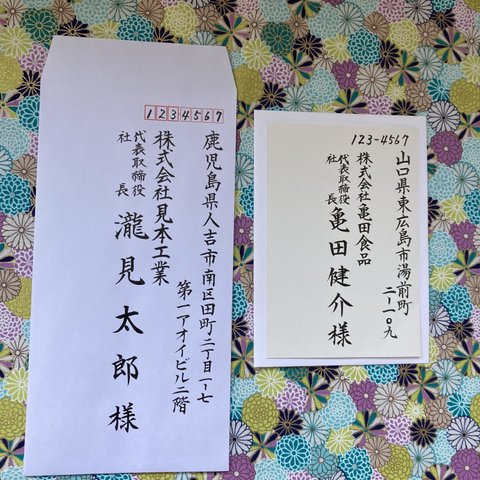 1234567
鹿児島県人吉市南区田町二丁目一-七
第一アオイビル二階
株式会社見本工業
代表取締役
社長
瀧見太郎様
123-4567
山口県東広島市湯前町
二-一〇九
株式会社亀田食品
代表取締役
社長
亀田健介様